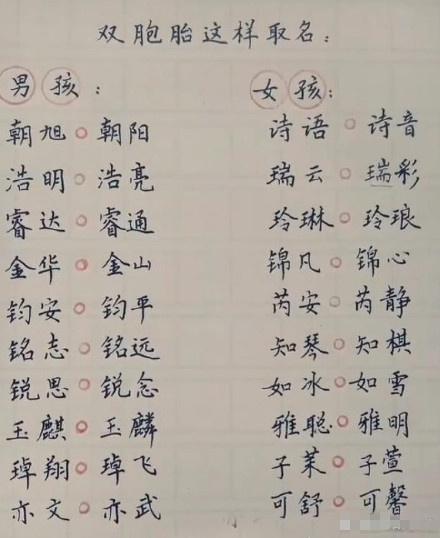 双胞胎这样取名：
男孩：
朝旭○朝阳
浩明○浩亮
睿达○睿通
金华○金山
钧安○钧平
铭志○铭远
锐思○锐念
玉麒○玉麟
琸翔○琸飞
亦文○亦武
女孩：
诗语○诗音
瑞云○瑞彩
玲琳○玲琅
锦凡○锦心
芮安○芮静
知琴○知棋
如冰○如雪
雅聪○雅明
子茱○子萱
可舒○可馨